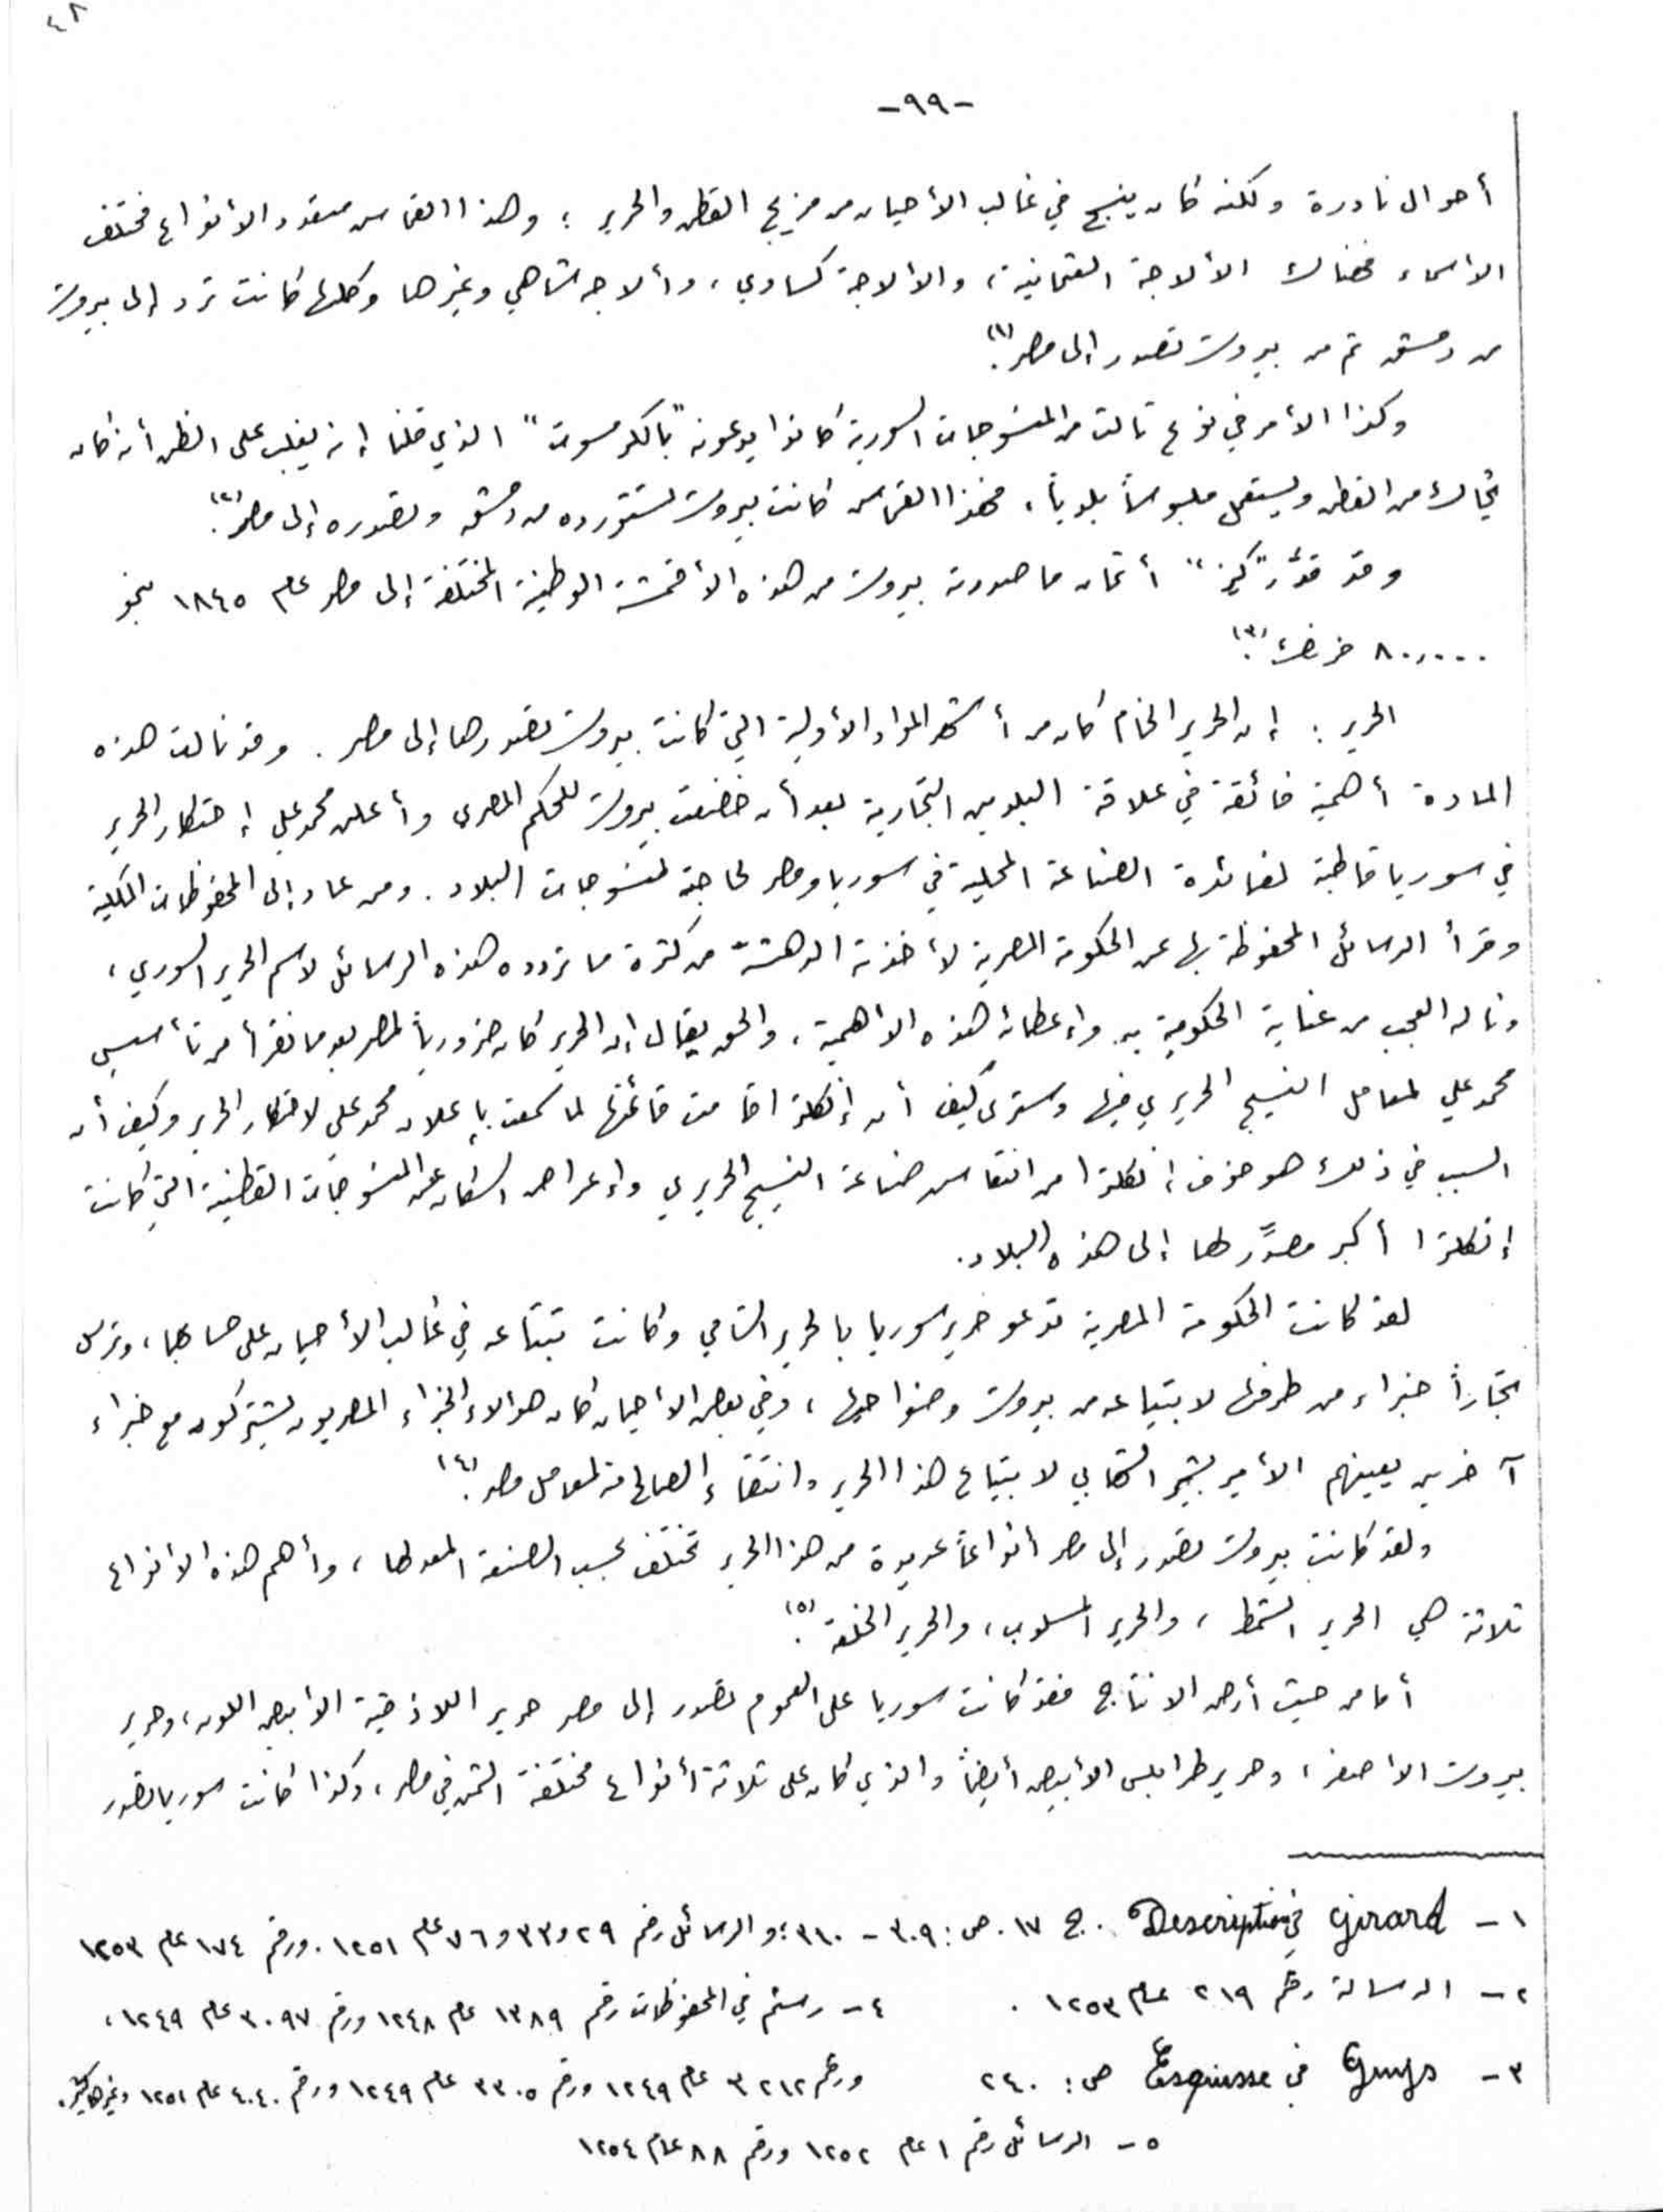 ٤٨
-٩٩-
أحوال نادرة ولكنه كان ينسج في غالب الأحيان من مزيج القطن والحرير ؛ وهذا القماش متعدد الأنواع مختلف
الاسماء فهناك الألاجة العثمانية ، والألاجة كساوي ، وألاجه شاهي وغيرها وكلها كانت ترد إلى بيروت
من دمشق ثم من بيروت تصدر إلى مصر (١).
وكذا الأمر في نوع ثالث من المنسوجات السورية كانوا يدعونه "بالكرمسوت" الذي قلنا إنه يغلب على الظن أنه كان
يحاك من القطن ويستعمل ملبوساً بلدياً ، فهذا القماش كانت بيروت تستورده من دمشق وتصدره إلى مصر (٢).
وقد قدَّر "كيز" أثمان ما صدرته بيروت من هذه الأقمشة الوطنية المختلفة إلى مصر عام ١٨٤٥ بنحو
٨٠٠,٠٠٠ فرنك (٣).
الحرير : إن الحرير الخام كان من أشهر المواد الأولية التي كانت بيروت تصدرها إلى مصر . وقد نالت هذه
المادة أهمية فائقة في علاقة البلدين التجارية بعد أن خضعت بيروت للحكم المصري وأعلن محمد علي إحتكار الحرير
في سوريا قاطبة لفائدة الصناعة المحلية في سوريا ومصر لحاجة منسوجات البلاد . ومن عاد إلى المحفوظات الملكية
وقرأ الرسائل المحفوظة بها عن الحكومة المصرية لأخذته الدهشة من كثرة ما تردده هذه الرسائل لاسم الحرير السوري ،
وناله العجب من عناية الحكومة به وإعطائه هذه الاهمية ، والحق يقال إن الحرير كان ضرورياً لمصر بعد ما نقرأ من تأسيس
محمد علي لمعامل النسيج الحريري فيها وسترى كيف أن إنكلترا اقامت قائمتها لما سمعت بإعلان محمد علي لاحتكار الحرير وكيف أن
السبب في ذلك هو خوف إنكلترا من انتعاش صناعة النسيج الحريري وإعراض السكان عن المنسوجات القطنية التي كانت
إنكلترا أكبر مصدِّر لها إلى هذه البلاد .
لقد كانت الحكومة المصرية تدعو حرير سوريا بالحرير الشامي وكانت تبتاعه في غالب الأحيان على حسابها ، وترسل
تجاراً خبراء من طرفها لابتياعه من بيروت وضواحيها ، وفي بعض الأحيان كان هؤلاء الخبراء المصريون يشتركون مع خبراء
آخرين يعينهم الأمير بشير الشهابي لابتياع هذا الحرير وانتقاء الصالح منه لمعامل مصر (٤).
ولقد كانت بيروت تصدر إلى مصر أنواعاً عديدة من هذا الحرير تختلف بحسب الصنعة المعد لها ، وأهم هذه الأنواع
ثلاثة هي الحرير الشمط ، والحرير المسلوب ، والحرير الخلعة (٥).
أما من حيث أرض الانتاج فقد كانت سوريا على العموم تصدر إلى مصر حرير اللاذقية الأبيض اللون ، وحرير
بيروت الاصفر ، وحرير طرابلس الأبيض أيضاً والذي كان على ثلاثة أنواع مختلفة الثمن في مصر ، وكذا كانت سوريا تصدر
١ - Girard في Description . ج ١٧ . ص : ٣٠٩ - ٣١٠ ؛ والرسائل رقم ٢٩ و ٣٣ و ٧٦ عام ١٢٥١ . ورقم ١٧٤ عام ١٢٥٣
٢ - الرسالة رقم ٢١٩ عام ١٢٥٣ .
٣ - Guys في Esquisse ص : ٢٤٠
٤ - رستم في المحفوظات رقم ١٣٨٩ عام ١٢٤٨ ورقم ٣٠٩٧ عام ١٢٤٩ ،
ورقم ٣٢١٢ عام ١٢٤٩ ورقم ٣٣٠٥ عام ١٢٤٩ ورقم ٤٠٤٠ عام ١٢٥١ وغيرها كثير .
٥ - الرسائل رقم ١ عام ١٢٥٢ ورقم ٨٨ عام ١٢٥٤